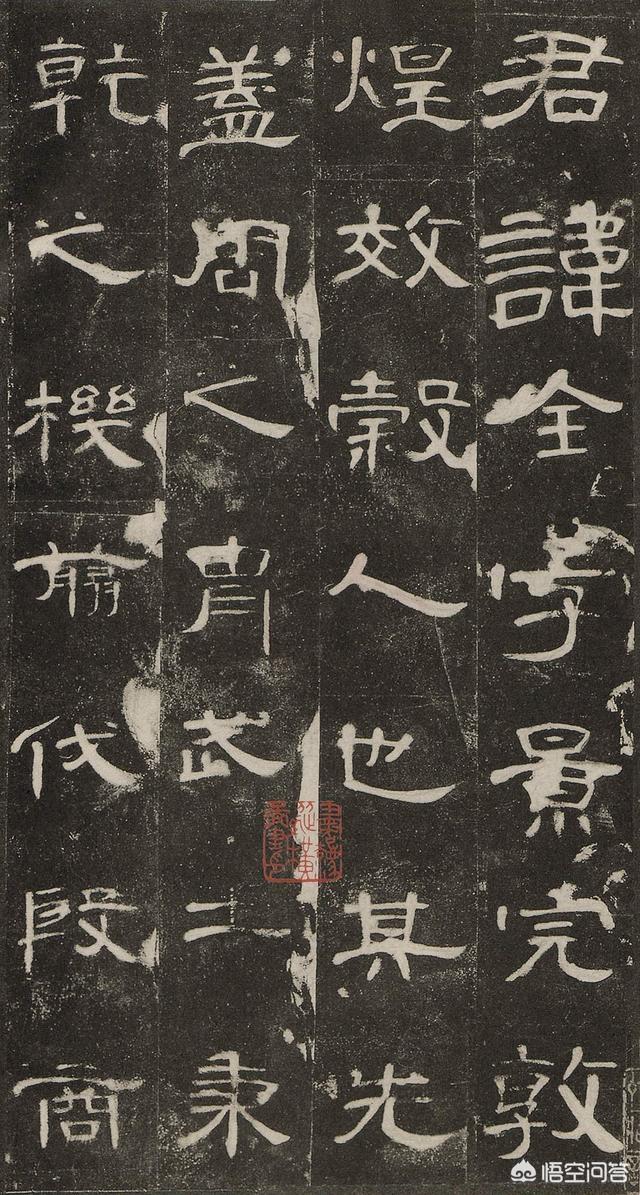 君諱全字景完敦
煌效穀人也其先
蓋周之胄武王秉
乾之機翦伐殷商
悟空问答